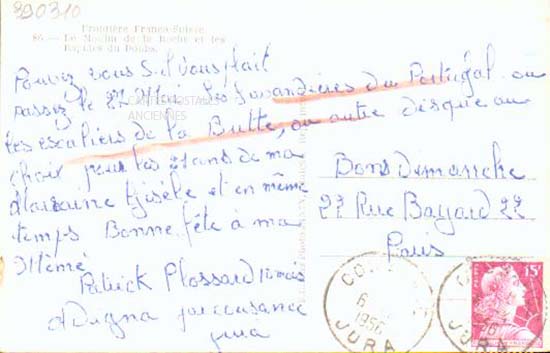 890310
Frontière Franco-Suisse
86. — Le Moulin de la Roche et les
Rapides du Doubs.
Pouvez vous S.il Vous Plait
passez le 27 Mai les Lavandières du Portugal ou
les escaliers de la Butte, ou autre disque au
choix pour les 21 ans de ma
Marraine Gisèle et en même
temps Bonne fête à ma
Mémé
Patrick Plossard
par cousance
Jura
CARTES POSTALES
ANCIENNES
Bons Dimanche
22 Rue Bayard 22
Paris
6
1956
JURA
15F
JURA